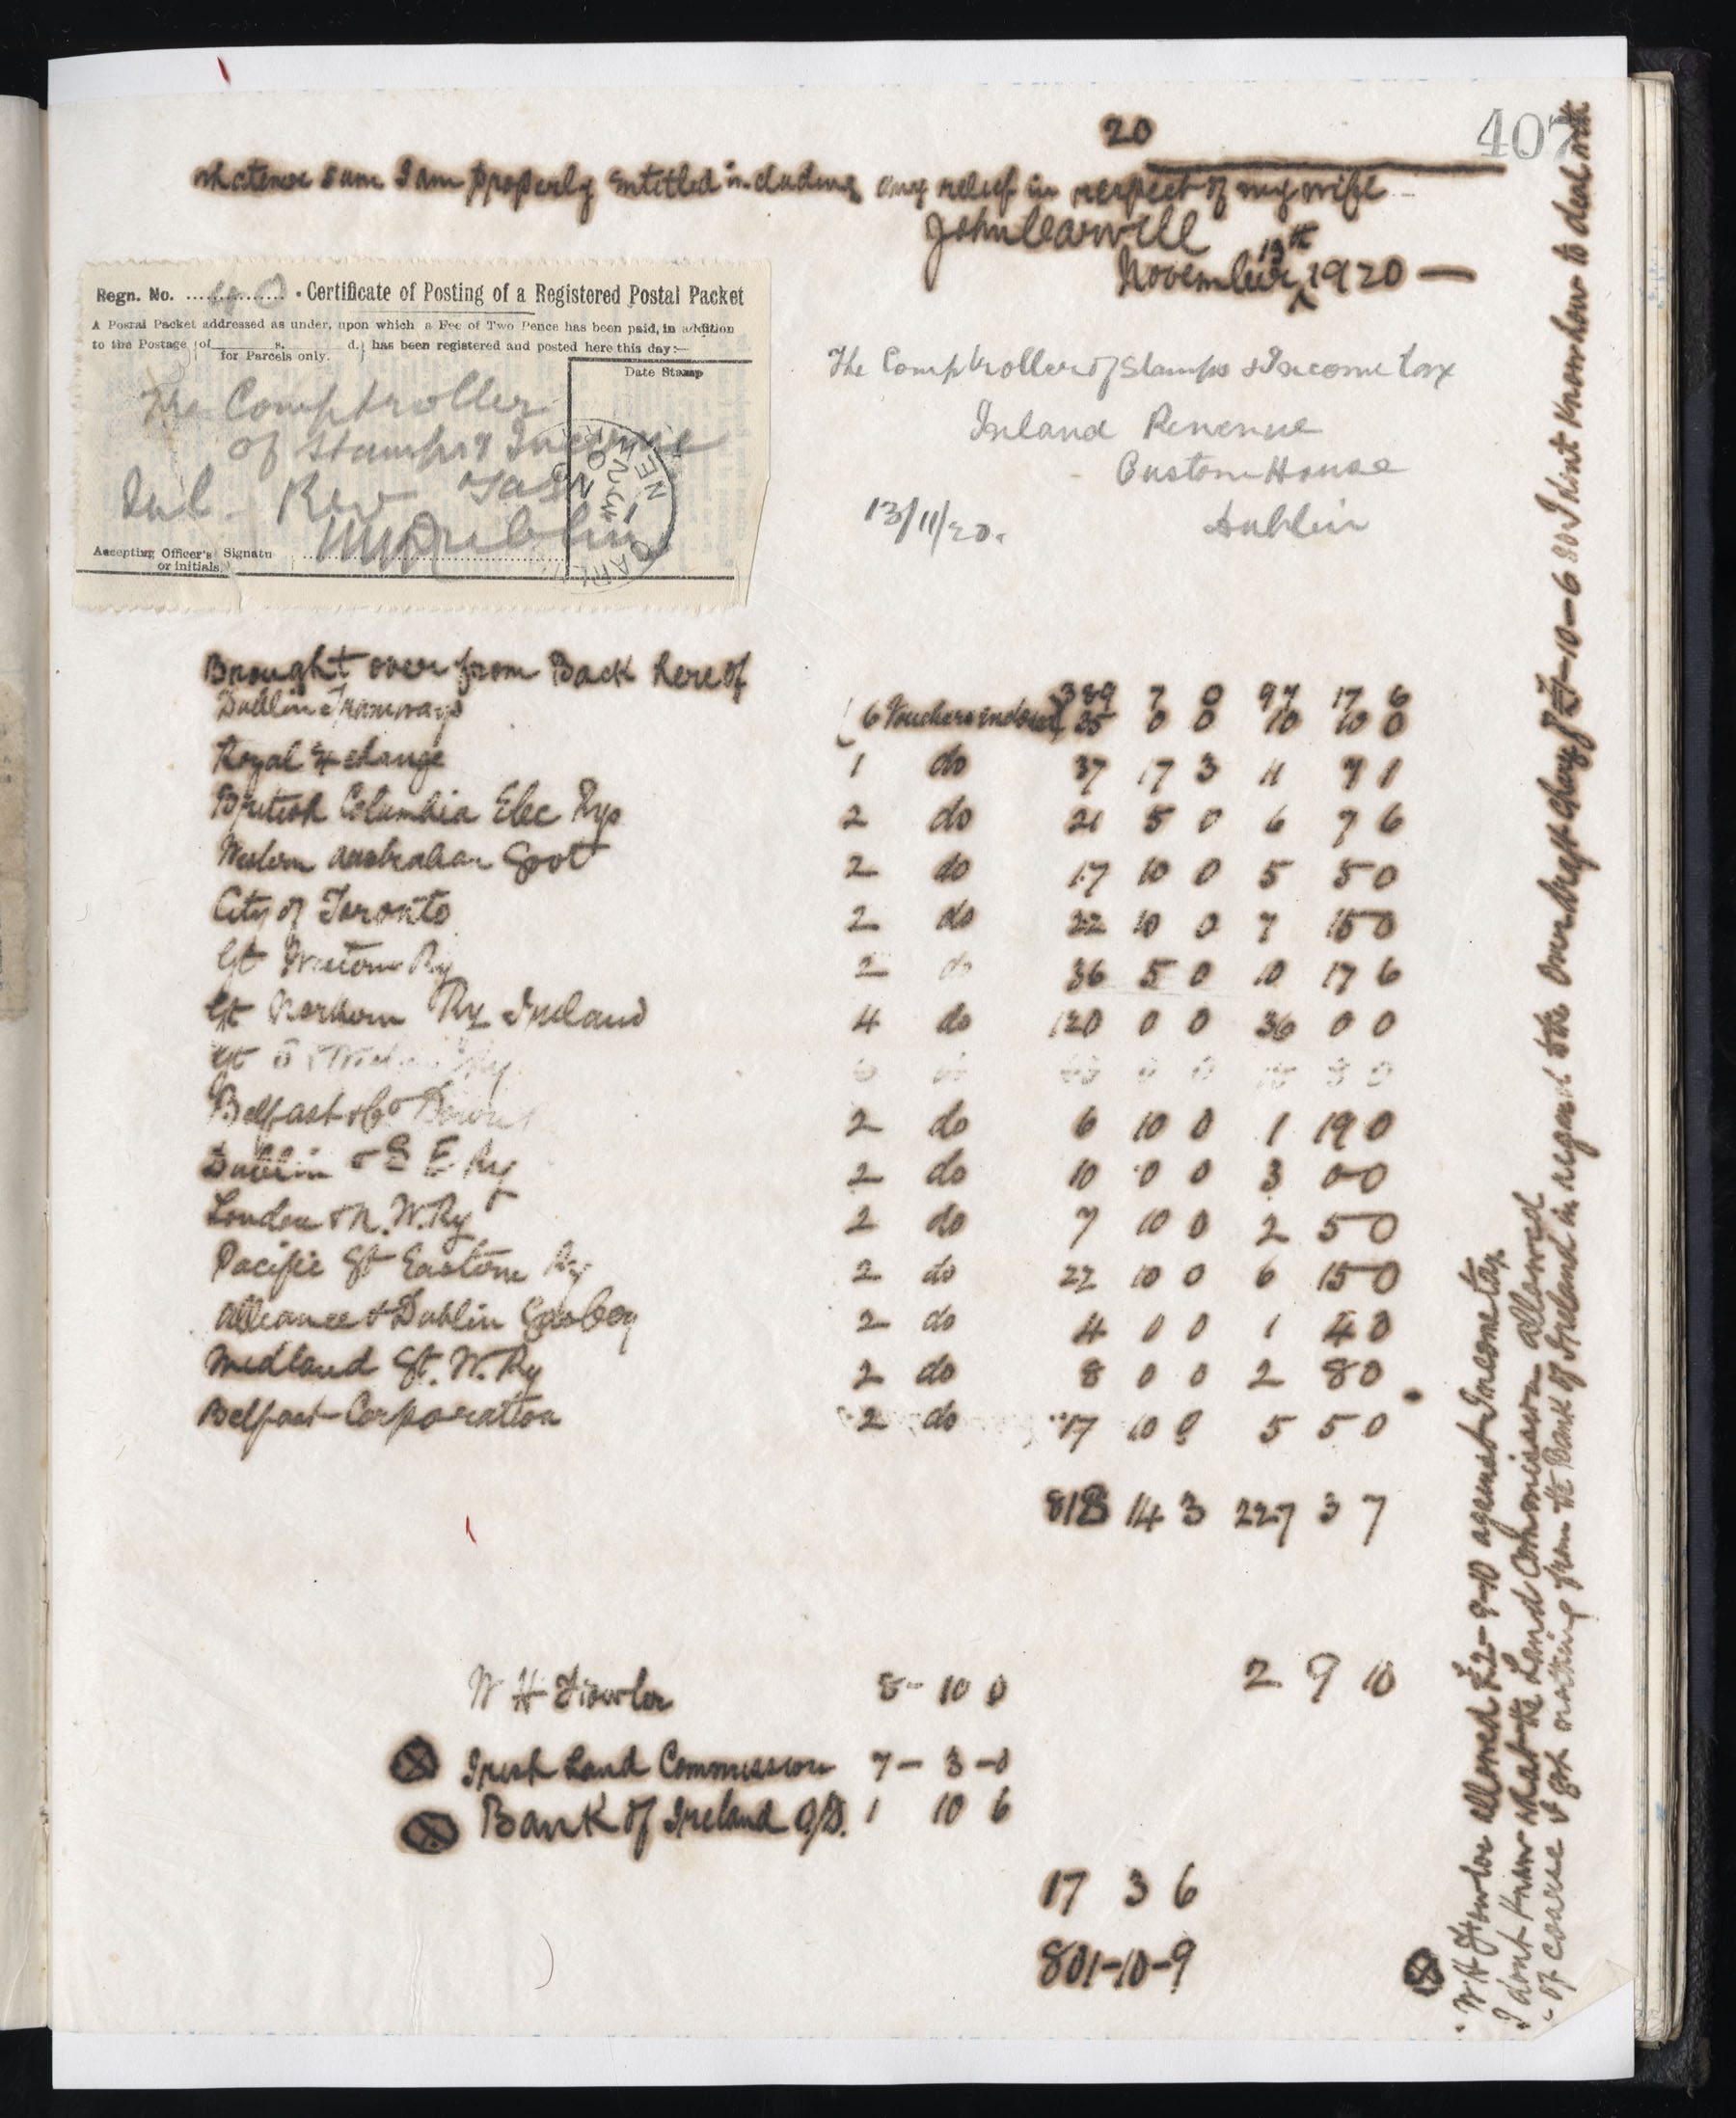 407
20
whatever sum I am properly entitled including any relief in respect of my wife
John Carwill
November 13th 1920 —
Regn. No. 40 . Certificate of Posting of a Registered Postal Packet
A Postal Packet addressed as under, upon which a Fee of Two Pence has been paid, in addition
to the Postage {of s. d.} has been registered and posted here this day:—
for Parcels only.
Date Stamp
The Comptroller
of Stamps & Income
Inl. Rev Tax
Dublin
Accepting Officer's Signatu
or initials.
The Comptroller of Stamps & Income tax
Inland Revenue
Custom House
13/11/20. Dublin
Brought over from Back hereof 389 7 0 97 17 6
Dublin Tramways 6 Vouchers inclosed 35 0 0 10 10 0
Royal Exchange 1 do 37 17 3 11 7 1
British Columbia Elec Rys 2 do 21 5 0 6 7 6
Western Australian Govt 2 do 17 10 0 5 5 0
City of Toronto 2 do 22 10 0 7 15 0
Gt Western Ry 2 do 36 5 0 10 17 6
Gt Northern Ry Ireland 4 do 120 0 0 36 0 0
Gt S & Western Ry
Belfast & Co Down 2 do 6 10 0 1 19 0
Dublin & S E Ry 2 do 10 0 0 3 0 0
London & N. W. Ry 2 do 7 10 0 2 5 0
Pacific Gt Eastern Ry 2 do 22 10 0 6 15 0
Alliance & Dublin Gas Coy 2 do 4 0 0 1 4 0
Midland Gt. W. Ry 2 do 8 0 0 2 8 0
Belfast Corporation 2 do 17 10 0 5 5 0
818 14 3 227 3 7
W H Fowler 8- 10 0 2 9 10
Irish Land Commission 7 - 3 - 0
Bank of Ireland O/D. 1 10 6
17 3 6
801-10-9
W H Fowler allowed £2-9-10 against Income tax
I dont know what the Land Commission allowed
of course I got nothing from the Bank of Ireland in regard to the Over draft charge of £1-10-6 so I dont know how to deal with